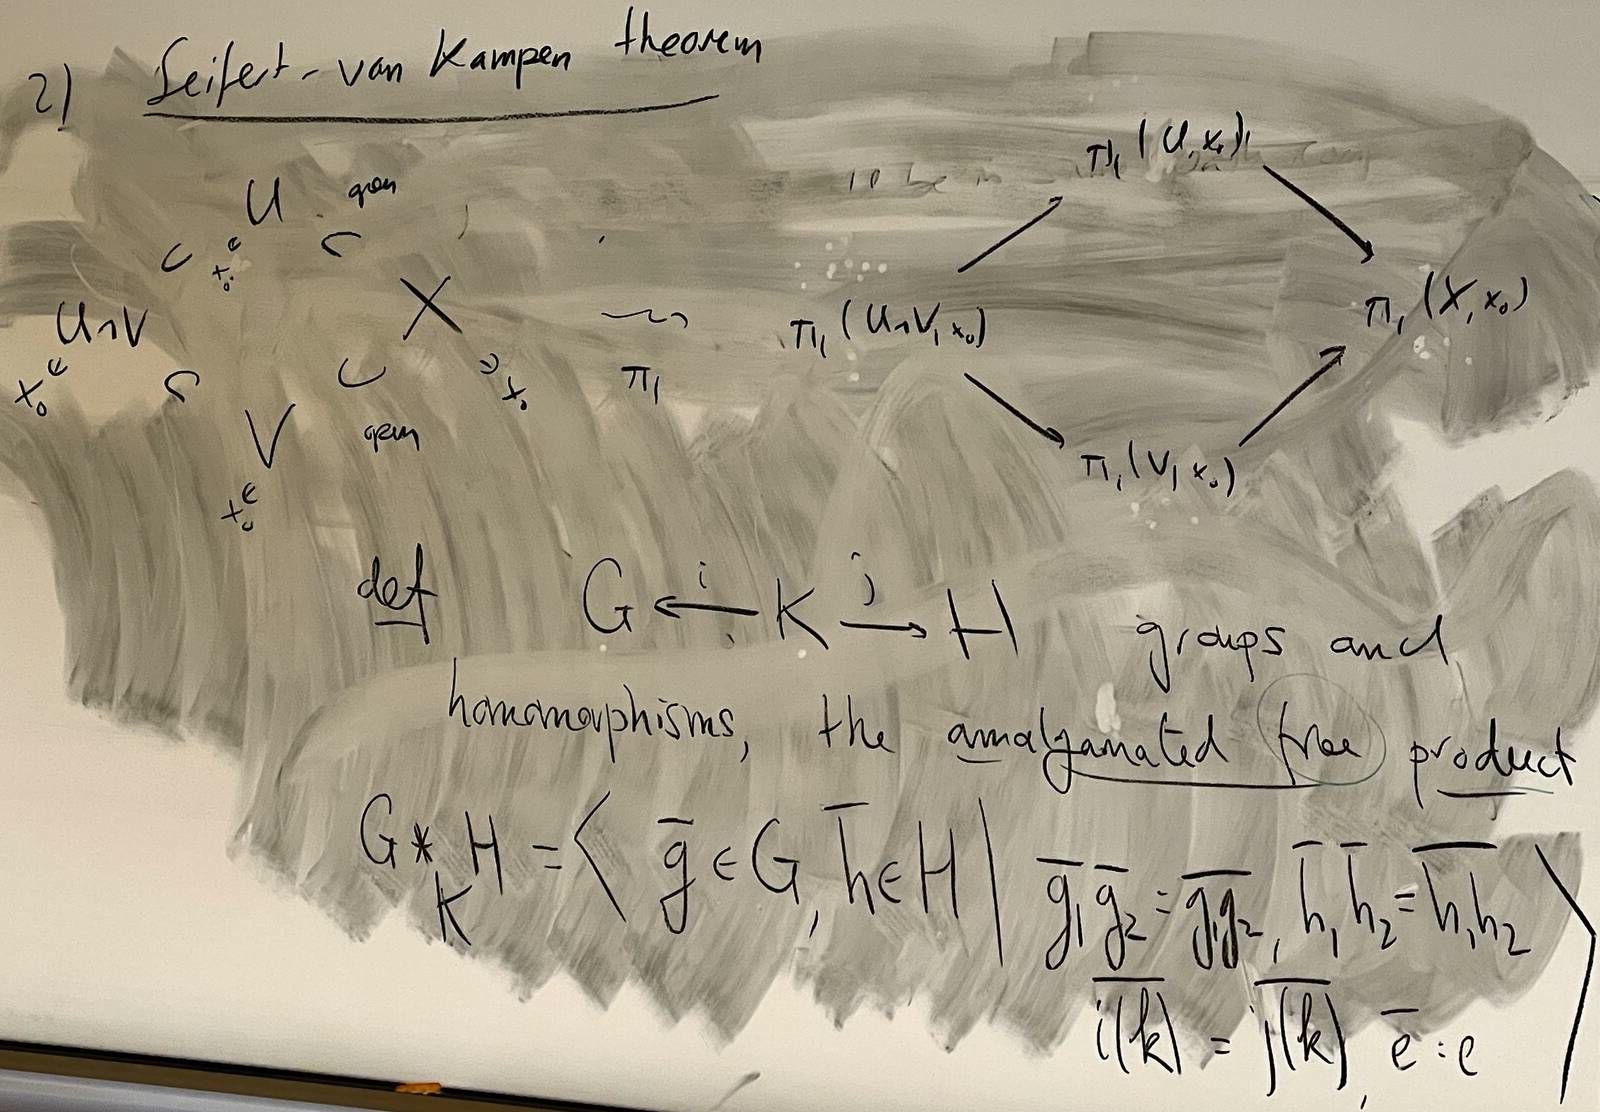 2) Seifert-van Kampen theorem
U open
⊂ x₀ ∈ ⊂
U∩V X
x₀ ∈ ⊂ ⊂ ∋ x₀
V open
x₀ ∈
⇝ π₁
π₁(U, x₀)
π₁(U∩V, x₀) π₁(X, x₀)
π₁(V, x₀)
def G ←i K j→ H groups and
homomorphisms, the amalgamated free product
G *_K H = ⟨ g̅ ∈ G, h̅ ∈ H | g̅₁ g̅₂ = \overline{g₁g₂}, h̅₁ h̅₂ = \overline{h₁h₂}
\overline{i(k)} = \overline{j(k)}, e̅ = e ⟩